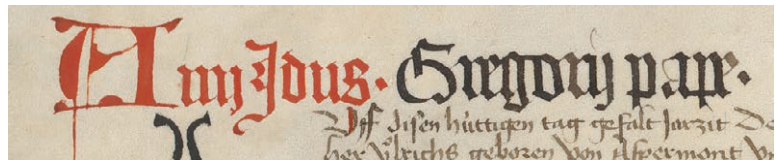 A iiij Idus. Gregorij pape.
Uff disen hüttigen tag gefalt Jarzit De
her Ulrichs geboren von Aspermont v